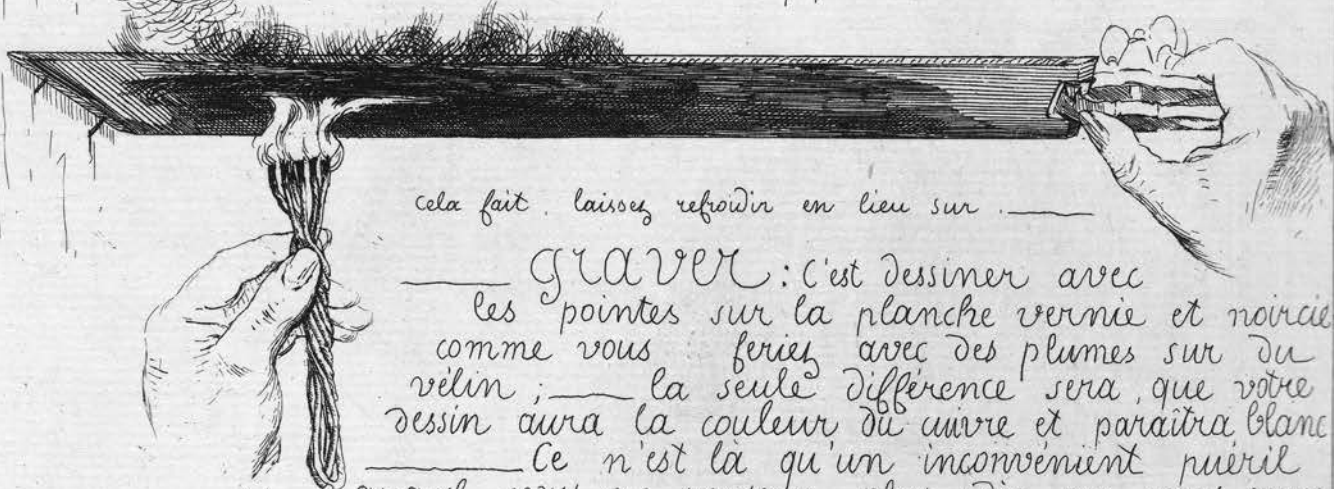 Cela fait, laissez refroidir en lieu sur.
Graver : C'est dessiner avec
les pointes sur la planche vernie et noircie
comme vous feriez avec des plumes sur du
vélin ; la seule différence sera, que votre
dessin aura la couleur du cuivre et paraîtra blanc
Ce n'est là qu'un inconvénient puéril